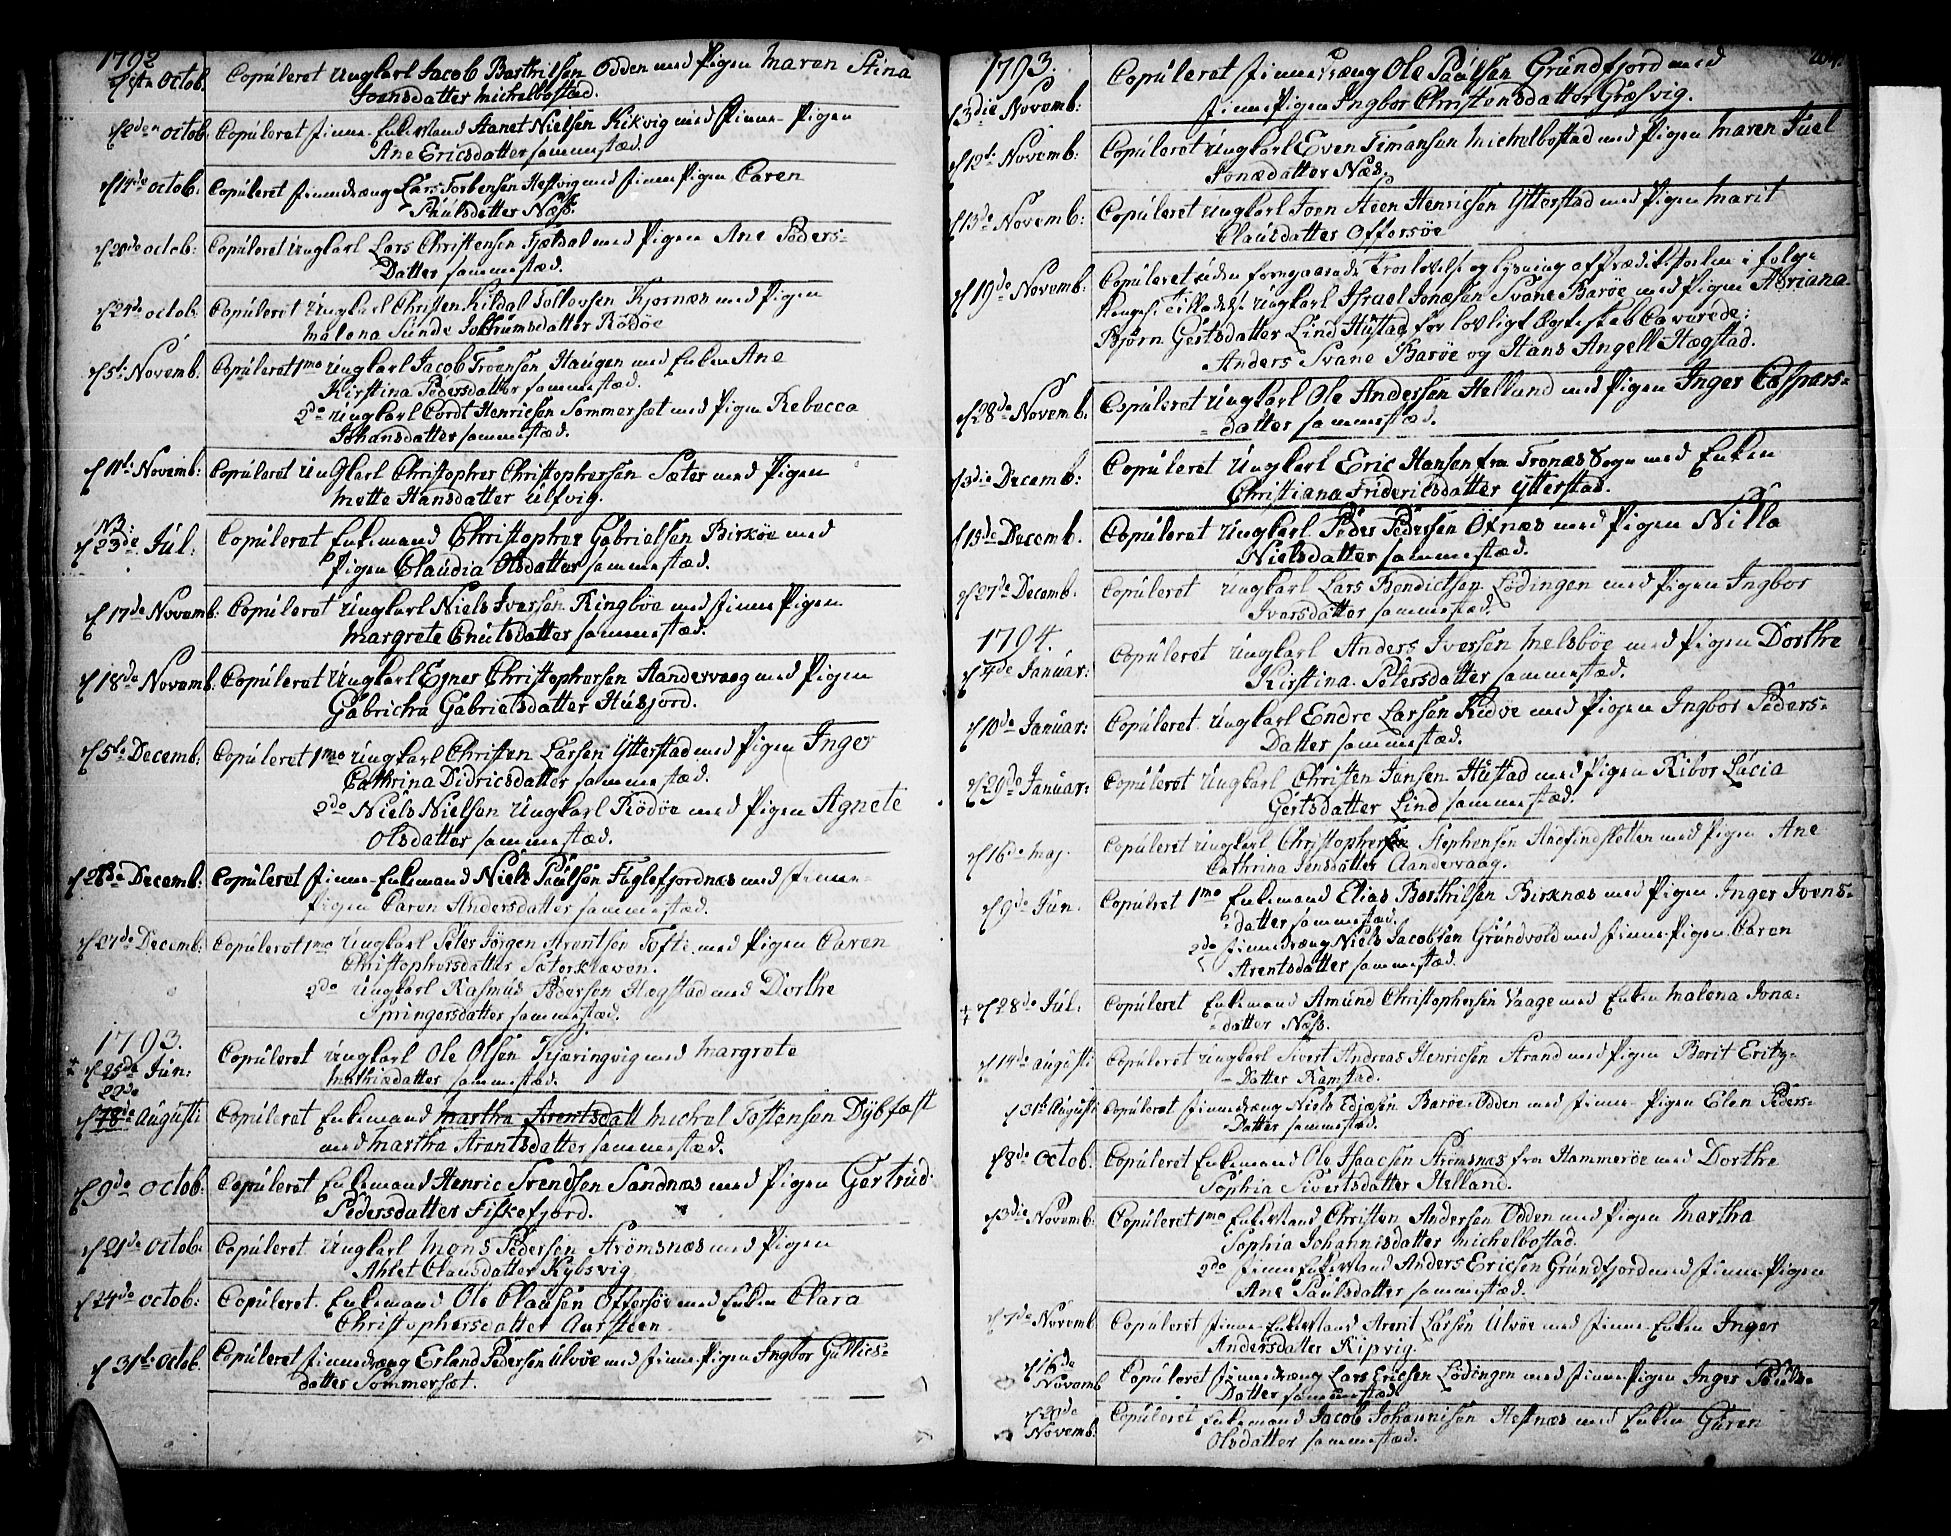 1792
Octob. Copuleret Ungkarl Jacob Barthilsen Odden med Pigen Maren Stina
Joensdatter Michelbostad.
octob Copuleret Finne-Enkemand Aanet Nielsen Kikvig med Finne-Pigen
Ane Ericsdatter sammestæd.
d 14de octob. Copuleret Finnedræng Lars Torbensen Hestvig med Finne Pigen Caren
Paulsdatter Næss.
d 20de octob: Copuleret Ungkarl Lars Christensen Fjeldal med Pigen Ane Peders-
Datter sammestæd.
d 24de octob. Copuleret Ungkarl Christen Kildal Tollovsen Kjørnæs med Pigen
Malena Sunde Joktrumsdatter Rödöe
d 5te Novemb. Copuleret 1mo Ungkarl Jacob Troensen Haugen med Enken Ane
Kirstina Pedersdatter sammestæd.
2do Ungkarl Cordt Henricsen Sommersæt med Pigen Rebecca
Johansdatter sammestæd.
d 11te Novemb: Copuleret Ungkarl Christopher Christophersen Sæter med Pigen
Mette Hansdatter Ulvig.
N3
d 23de Jul: Copuleret Enkemand Christopher Gabrielsen Birkøe med
Pigen Claudia Olsdatter sammestæd.
d 17de Novemb: Copuleret Ungkarl Niels Iversen Ringböe med Finne Pigen
Margrete Cnutsdatter sammestæd.
d 18de Novemb. Copuleret Ungkarl Egner Christophersen Aandervaag med Pigen
Gabricha Gabrielsdatter Husjord.
d 5te Decemb: Copuleret 1mo Ungkarl Christen Larsen Ytterstad med Pigen Inger
Cathrina Didricsdatter sammestæd.
2do Niels Nielsen Ungkarl Rödöe med Pigen Agnete
Olsdatter sammestæd.
d 26de Decemb: Copuleret Finne-Enkemand Niels Paulsen Fuglefjordnæs med Finne-
Pigen Caren Andersdatter sammestæd.
d 27de Decemb: Copuleret 1mo Ungkarl Peter Jörgen Arentsen Tofte med Pigen Caren
Christophersdatter Sæterkleven.
2do Ungkarl Rasmus Pedersen Hægstad med Dorthe
Springersdatter sammestæd.
1793.
d 25de Jun: Copuleret Ungkarl Ole Olsen Kjæringvig med Margrete
Mathiædatter sammestæd.
22de
d 18de Augusti Copuleret Enkemand Martha Arentsdatt Michel Tostensen Dybfæst
med Martha Arentsdatter sammestæd.
d 9de Octob: Copuleret Enkemand Henric Svendsen Sandnæs med Pigen Gertrud
Pedersdatter Fiskefjord.
d 21de Octob. Copuleret Ungkarl Mons Pedersen Strömsnæs med Pigen
Ahlet Clausdatter Kybsvig
d 24de octob: Copuleret. Enkemand Ole Clausen Offersøe med Enken Clara
Christophersdatter Aursteen
d 31te Octob. Copuleret Finnedræng Erland Pedersen Ulvöe med Finne-Pigen Ingbor Gullics-
datter Sommersæt.
1793.
204.
d 3die Novemb: Copuleret Finnedræng Ole Paulsen Grundfjord med
Finne-Pigen Ingbor Christensdatter Græsvig.
d 12te Novemb: Copuleret Ungkarl Even Timansen Michelbostad med Pigen Maren Juel
Jonædatter Næs.
d 13de Novemb: Copuleret Ungkarl Joen Steen Henricsen Ytterstad med Pigen Marit
Clausdatter Offersøe
d 19de Novemb: Copuleret uden foregaaende Troslovelse og Lysning af Prædikestolen i følge
Kongel: Tilladelse Ungkarl Israel Jonæsen Svane Barøe med Pigen Adriana
Bjørn Gertsdatter Lind Hustad for lovligt Ægteskab Caverede:
Anders Svane Barøe og Hans Angell Hægstad.
d 28de Novemb. Copuleret Ungkarl Ole Andersen Helland med Pigen Inger Caspars-
datter sammestæd.
d 3die Decemb: Copuleret Ungkarl Eric Hansen fra Tronæs Sogn med Enken
Christiana Fridericsdatter Ytterstad.
d 15de Decemb. Copuleret Ungkarl Peder Pedersen Öxnæs med Pigen Nilla
Nielsdatter sammestæd.
d 27de Decemb. Copuleret Ungkarl Lars Bendictsen Lödingen med Pigen Ingbor
Iversdatter sammestæd.
1794.
d 4de Januar: Copuleret Ungkarl Anders Iversen Melsböe med Pigen Dorthe
Kirstina Petersdatter sammestæd.
d 10de Januar: Copuleret Ungkarl Endre Larsen Rödöe med Pigen Ingbor Peders-
Datter sammestæd.
d 29de Januar: Copuleret Ungkarl Christen Jansen Hustad med Pigen Ribor Lucia
Gertsdatter Lind sammestæd.
d 16de Maj. Copuleret Ungkarl Christopher Stephensen Andfindsletten med Pigen Ane
Cathrina Jensdatter Aandervaag.
d 9de Jun. Copulret 1mo Enkemand Elias Barthilsen Birknæs med Pigen Inger Ivens-
datter sammestæd.
2do Finnedræng Niels Jacobsen Grundvold med Finne-Pigen Caren
Arentsdatter sammestæd.
d 28de Jul: Copuleret Enkemand Amund Christophersen Vaage med Enken Malena Jonæ-
datter Næss.
d 14de Augusti Copuleret Ungkarl Sivert Andreas Henricsen Strand med Pigen Berit Eritz-
Datter Ramstad.
d 31te Augusti Copuleret Finnedræng Niels Edisen Barøe-Odden med Finne-Pigen Elen Peders-
Datter sammestæd.
d 8de Octob. Copuleret Enkemand Ole Isaacsen Strömsnæs fra Hammeröe med Dorthe
Sophia Sivertsdatter Helland.
d 3die Novemb: Copuleret 1mo Enkemand Christen Andersen Odden med Pigen Martha
Sophia Johannisdatter Michelbostad.
2do Finne Enkemand Anders Ericsen Grundfjord med Finne-Pigen
Ane Paulsdatter sammestæd.
d 7de Novemb Copuleret Finne-Enkemand Arent Larsen Ulvöe med Finne-Enken Inger
Andersdatter Kipvig.
d 16de
Novemb Copuleret Finnedræng Lars Ericsen Lödingen med Finne-Pigen Inger
Datter sammestæd.
d 20de
Novemb: Copuleret Enkemand Jacob Johannisen Hestnæs med Enken Guren
Olsdatter sammestæd.